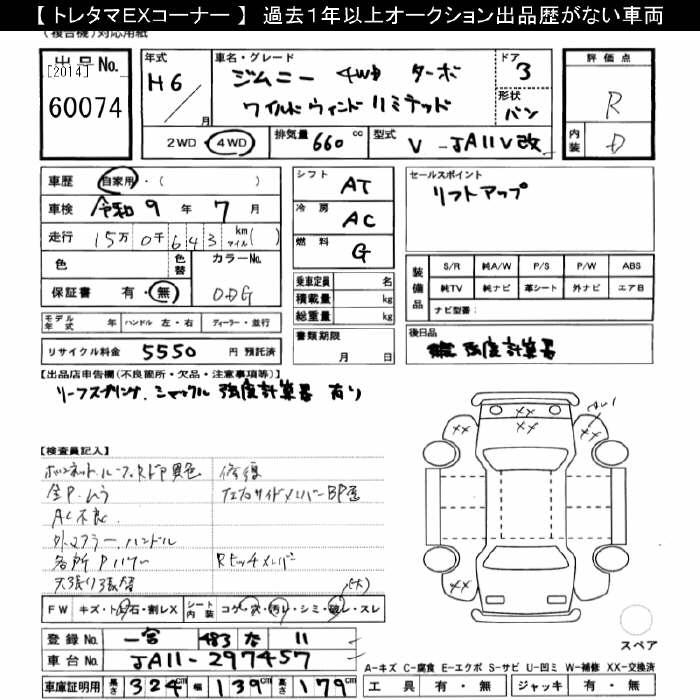 【 トレタマEXコーナー 】 過去1年以上オークション出品歴がない車両
(複合機)対応用紙
出品No.
[2014]
60074
年式 H6/ 月
車名・グレード ジムニー 4WD ターボ
ワイルドウィンドリミテッド
ドア 3
形状 バン
評価点 R
内装 D
2WD・4WD 排気量 660cc 型式 V-JA11V改
車歴 自家用・( )
車検 令和 9年 7月
走行 15万0千643 km マイル( )
色 色替 カラーNo.
保証書 有・無
シフト AT
冷房 AC
燃料 G
乗車定員 名
積載量 kg
総重量 kg
書類期限 月 日
セールスポイント
リフトアップ
装備品
S/R 純A/W P/S P/W ABS
純TV 純ナビ 革シート 外ナビ エアB
ナビ型番:
モデル年式 年 ハンドル 左・右 ディーラー・並行
リサイクル料金 5550 円 預託済
後日品
強度計算書
【出品店申告欄(不良箇所・欠品・注意事項等)】
リーフスプリング、シャックル 強度計算書 有り
【検査員記入】
ボンネット、ルーフ、RドアP異色 修復
全P.ムラ
AC不良
外マフラー、ハンドル
各所Pハゲ
天張り張替
FW キズ・トビ石・割レX シート内装 コゲ・穴・汚レ・シミ・破レ・スレ
(大)
登録No. 一宮 483 な 11
車台No. JA11-297457
車庫証明用 長さ 324cm 幅 139cm 高さ 179cm
XX XX XX XX XX
スペア
A－キズ C－腐食 E－エクボ S－サビ U－凹ミ W－補修 XX－交換済
工具 有・無 ジャッキ 有・無